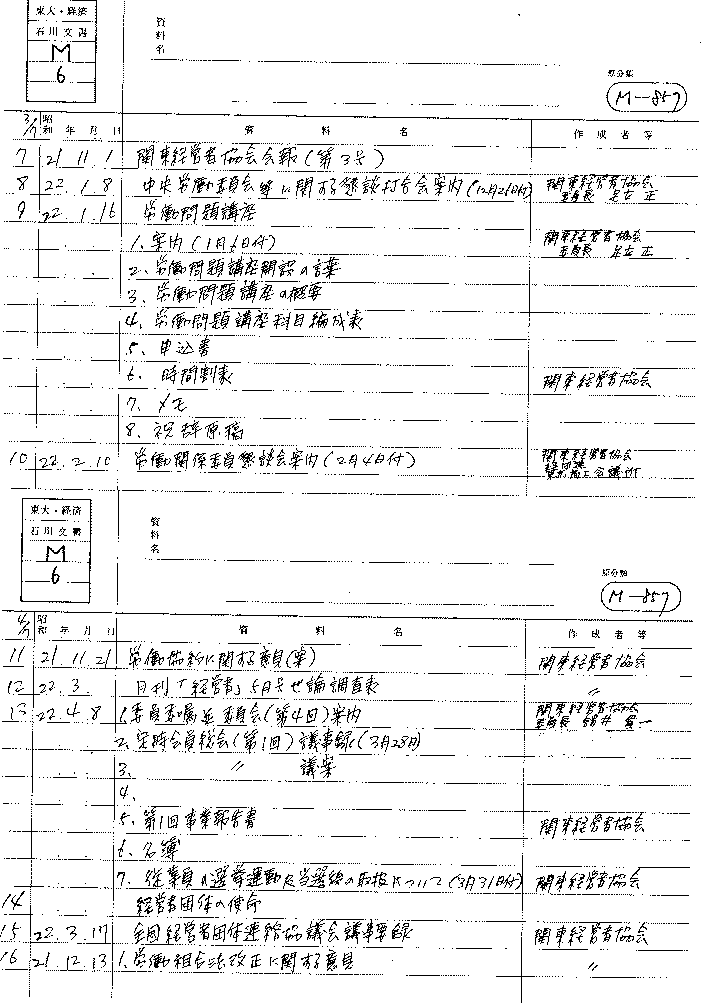 東大・経済
石川文書
M
6
資料名
原分類
M-857
3/7 昭和 年 月 日 資料名 作成者等
7 21 11 1 関東経営者協会会報(第3号)
8 22 1 8 中央労働委員会等に関する懇談打合会案内(12月26日付) 関東経営者協会
委員長 足立 正
9 22 1 16 労働問題講座
1. 案内(1月6日付) 関東経営者協会
委員長 足立 正
2. 労働問題講座開設の言葉
3. 労働問題講座の概要
4. 労働問題講座科目編成表
5. 申込書
6. 時間割表 関東経営者協会
7. メモ
8. 祝辞原稿
10 22 2 10 労働関係委員懇談会案内(2月4日付) 関東経営者協会
東大・経済
石川文書
M
6
資料名
原分類
M-857
4/7 昭和 年 月 日 資料名 作成者等
11 21 11 21 労働協約に関する意見(案) 関東経営者協会
12 22 3 月刊「経営者」5月号世論調査表 〃
13 22 4 8 1. 委員委嘱並委員会(第4回)案内 関東経営者協会
2. 定時会員総会(第1回)議事録(3月28日)
3. 〃 議案
4.
5. 第1回事業報告書 関東経営者協会
6. 名簿
7. 従業員の選挙運動及当選後の取扱について(3月31日付) 関東経営者協会
14 経営者団体の使命
15 22 3 17 全国経営者団体連絡協議会議事要録 関東経営者協会
16 21 12 13 1. 労働組合法改正に関する意見 〃